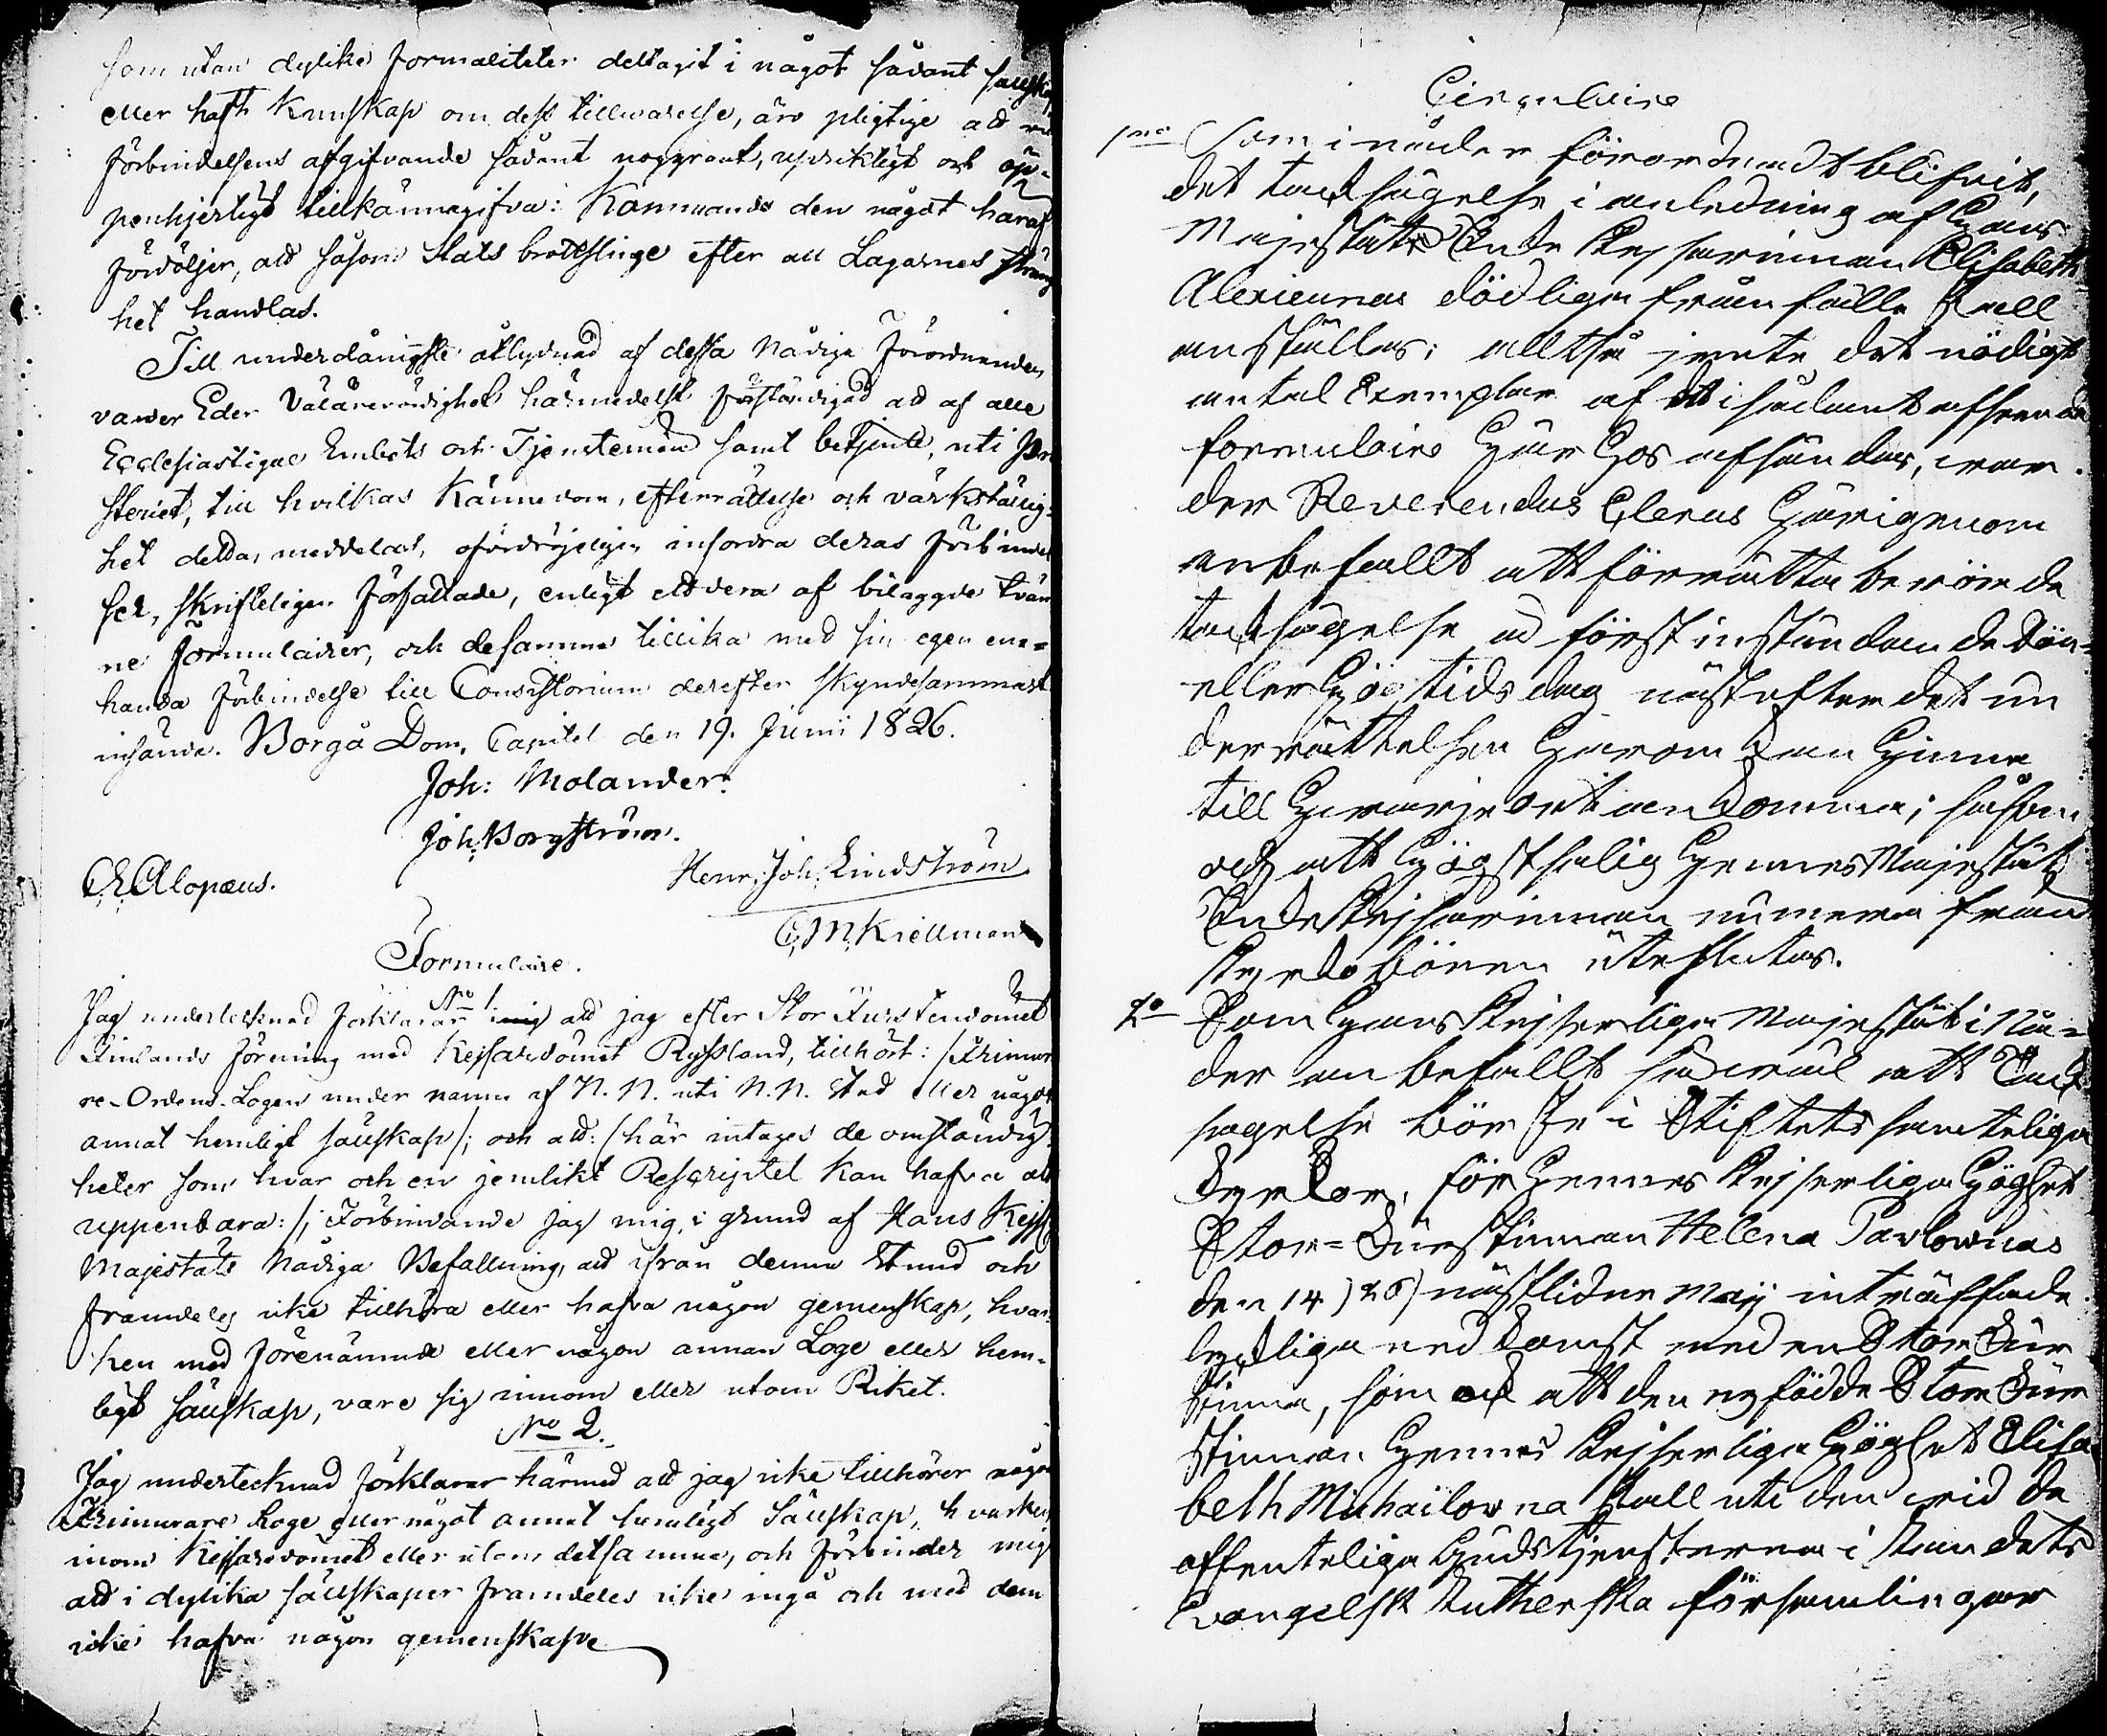 som utan dylika formaliteter deltagit i något sådant sällskap
eller haft Kunskap om dess tillwarelse, äro pligtige att vid
förbindelsens afgifvande sådant noggrant, uprigtigt och öp-
penhjertigt tillkännagifva: Kommandes den något häraf
fördöljer, att såsom Stats brottslinge efter all Lagarnes sträng
het handlas.
Till underdånigste åtlydnad af dessa Nådiga Förordnanden
varder Eder Välärevördighet härmedelst förständigad att af alle
Ecclesiastique Embets och Tjenstemän samt betjente, uti Pro
steriet, till hvilkas Kännedom, efterrättelse och värkställig-
het detta meddelas, ofördröjeligen infordra deras Förbindel
ser, skrifteligen författade, enligt ettdera af bilaggde tvän
ne Formulairer, och desamma tillika med sin egen ena-
handa förbindelse till Consistorium derefter skyndesammast
insända. Borgå Dom. Capitel den 19. Junii 1826.
Joh: Molander.
Joh. Borgström.
Henr. Joh. Lindström
Alopæus.
C. M. Kiellman
Formulaire.
No 1
Jag undertecknad förklarar att jag efter Stor Furstendömet
Finlands förening med Kejsardömet Ryssland, tillhört: /Frimura
re-Ordens-Logen under namn af N. N. uti N. N. Stad eller något
annat hemligt sällskap/; och att: /här intages de omständig
heter som hvar och en jemlikt Rescriptet kan hafva att
uppenbara:/; Förbindande jag mig, i grund af Hans Kejs
Majestäts Nådiga Befallning, att ifrån denna Stund och
framdeles icke tillhöra eller hafva någon gemenskap, hvar
ken med förenämnde eller någon annan Loge eller hem-
ligt sällskap, vare sig innom eller utom Riket.
No 2.
Jag undertecknad förklarar härmed att jag icke tillhörer någon
Frimurare Loge eller något annat hemligt Sällskap, hvarken
inom Kejsaredömet eller utom detsamma, och förbinder mig
att i dylika sällskaper framdeles icke ingå och med dem
icke hafva någon gemenskap
Circulaire
1mo Som i nåder förordnadt blifvit,
det tacksägelse i anledning af Hans
Majestäts Enke Kejsarinnan Elisabeth
Alexiewnas dödliga frånfälle skall
anställas; alltså jemte det nödigt
antal Exemplar af i sådant afseende
formulaire här hos afsändas, war-
der Reverendus Clerus härigenom
anbefallt att förrätta berörde
tacksägelse å först instundande Sön-
eller Högtidsdag näst efter det un
derrättelsen härom kan hinna
till hwarje ort ankomma; såsom
och att Högstsalig Hennes Majestät
Enke Kejsarinnan numera från
Kyrkobönen uteslutes.
2do Som Hans Kejserliga Majestät i Nå-
der anbefallt såwäl att Tack
sägelse bör ske i Stiftets samteliga
Kyrkor, för Hennes Kejserliga Höghet
Stor-Furstinnan Helena Pavlownas
den 14)26) nästlidne Maij inträffade
lyckliga nedkomst med en Stor Fur
stinna, som ock att den nyfödde Stor Fur
stinnan Hennes Kejserliga Höghet Elisa
beth Michailowna skall uti den wid de
offenteliga Gudstjensterna i Landets
Evangelisk Lutherska församlingar